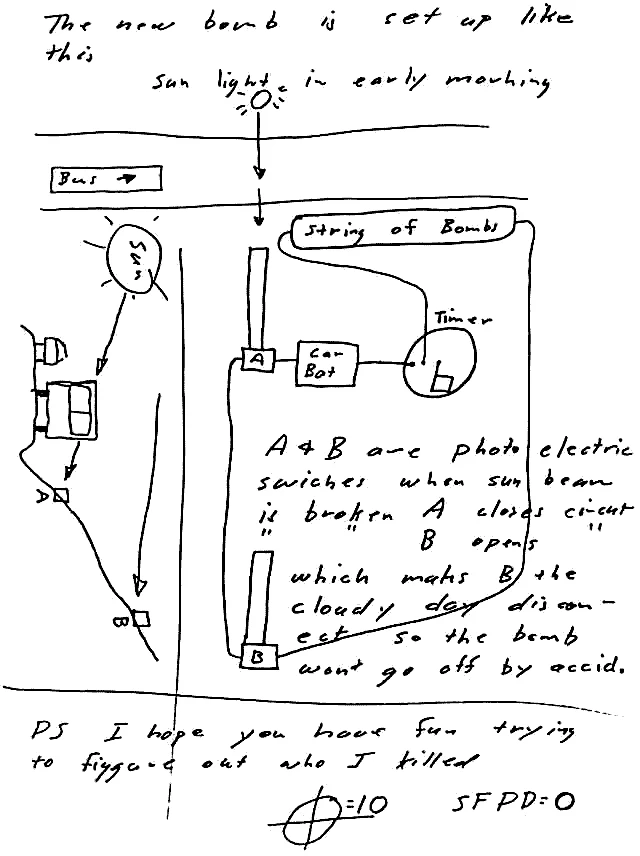 The new bomb is set up like
this
sun light in early morning
Bus
Sun
String of Bombs
Timer
A
Car
Bat
A & B are photo electric
swiches when sun beam
is broken A closes circut
" " "
B opens
A
which maks B the
cloudy day discon-
B
ect so the bomb
B
wont go off by accid.
PS I hope you have fun trying
to figgure out who I killed
=10 SFPD=0